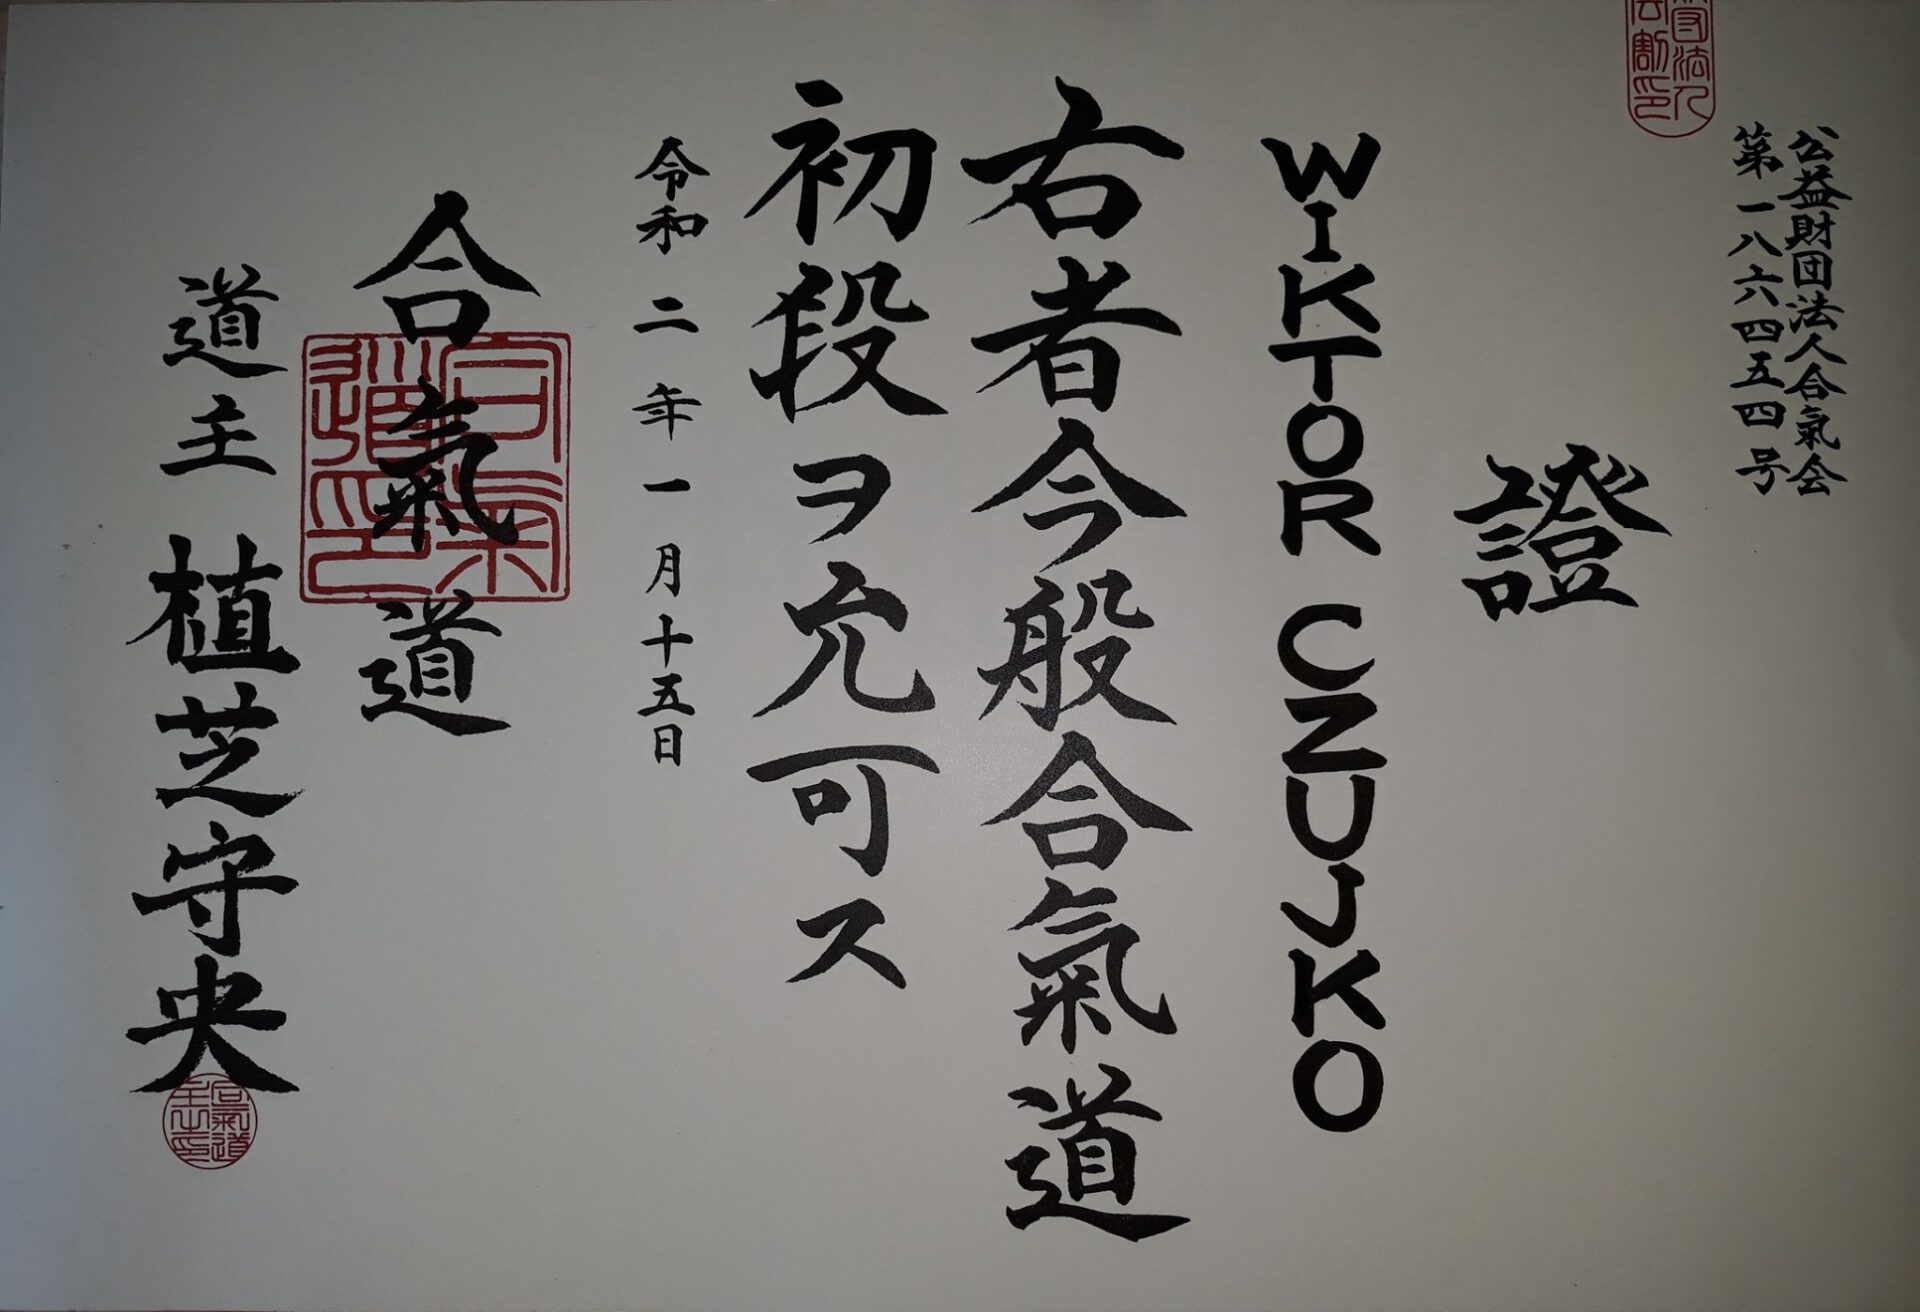 公益財団法人合氣会
第一八六四五四号
證
WIKTOR CZUJKO
右者今般合氣道
初段ヲ允可ス
令和二年一月十五日
合氣道
道主 植芝守央
合氣道
主之印